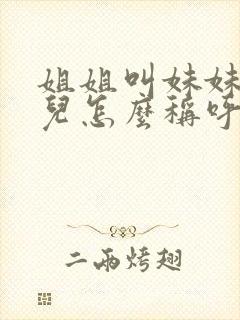 姐姐叫妹妹
兒怎麼稱呼
二兩烤翅